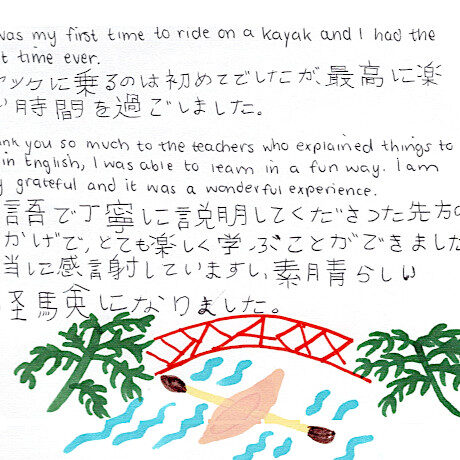 was my first time to ride on a kayak and I had the
t time ever.
ヤックに乗るのは初めてでしたが、最高に楽
い時間を過ごしました。
nk you so much to the teachers who explained things to
in English, I was able to learn in a fun way. I am
y grateful and it was a wonderful experience.
語で丁寧に説明してくださった先方の
かげで、とても楽しく学ぶことができました
当に感謝していますし、素晴らしい
経験になりました。